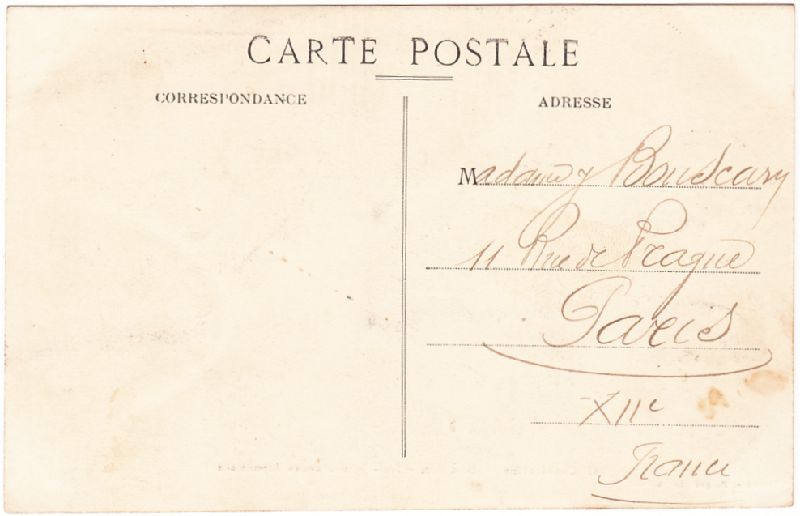 CARTE POSTALE
CORRESPONDANCE
ADRESSE
Madame J Bouscary
11 Rue de Prague
Paris
XIIe
France